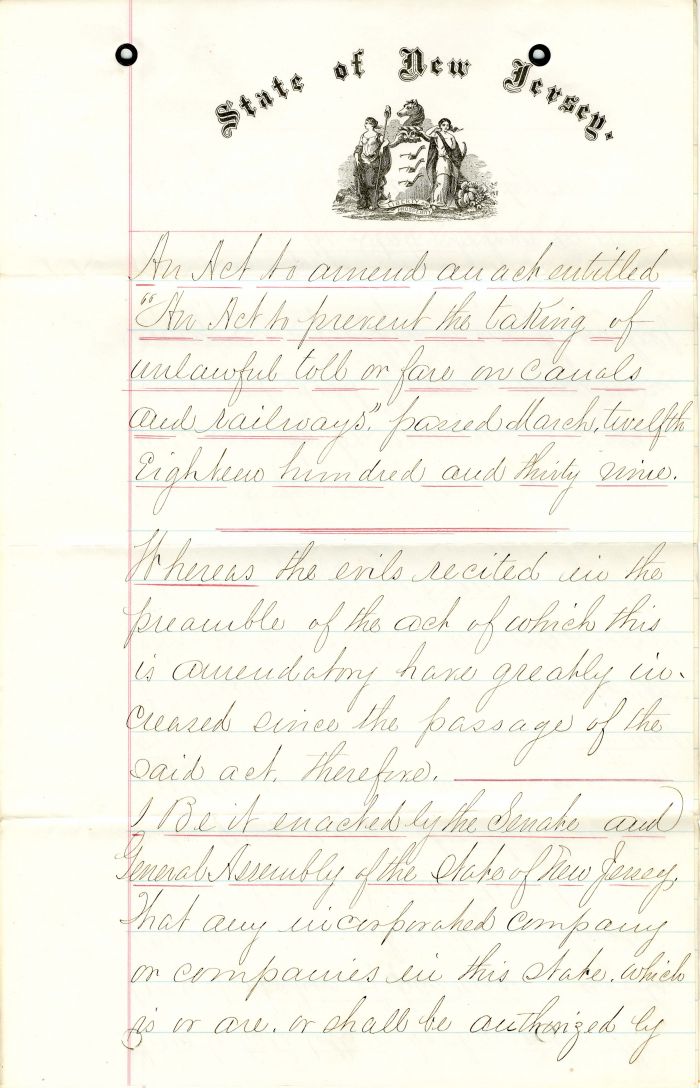 State of New Jersey.
LIBERTY
An Act to amend an act entitled
"An Act to prevent the taking of
unlawful toll or fare on canals
and railways", passed March, twelfth
Eighteen hundred and thirty nine.
Whereas the evils recited in the
preamble of the act of which this
is amendatory have greatly in-
creased since the passage of the
said act, therefore.
1 Be it enacted by the Senate and
General Assembly of the State of New Jersey,
That any incorporated company
or companies in this state, which
is or are, or shall be authorized by